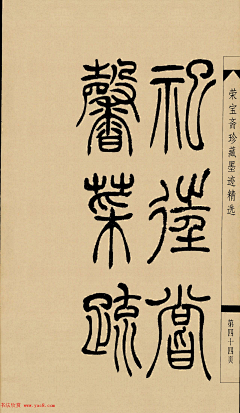 祀
嘗
馨葉疏
荣宝斋珍藏墨迹精选
第四十四页
书法欣赏 www.yac8.com